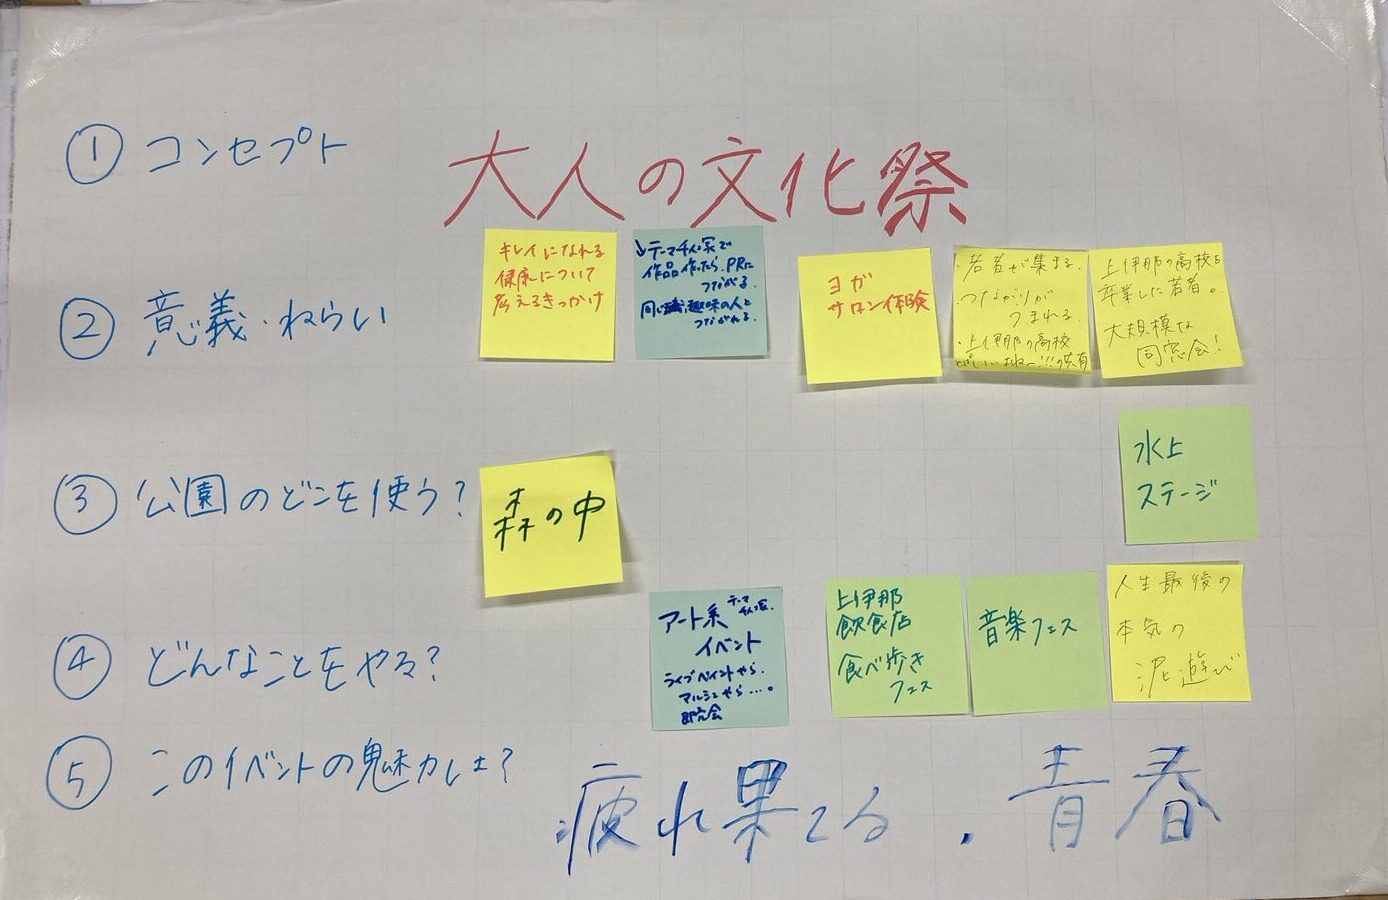 ① コンセプト
大人の文化祭
② 意義・ねらい
キレイになれる
健康について
考えるきっかけ
↓テーマ
作品作ったら、PRに
つながる。
同じ職、趣味の人と
つながれる。
ヨガ
サロン体験
・若者が集まる。
つながりが
うまれる。
・上伊那の高校
上伊那の高校を
卒業した若者。
大規模な
同窓会!
③ 公園のどこを使う?
森の中
水上
ステージ
④ どんなことをやる?
アート系
テーマ
イベント
ライブペイントやら、
マルシェやら…。
即売会
上伊那
飲食店
食べ歩き
フェス
音楽フェス
人生最後の
本気の
泥遊び
⑤ このイベントの魅力は?
疲れ果てる、青春